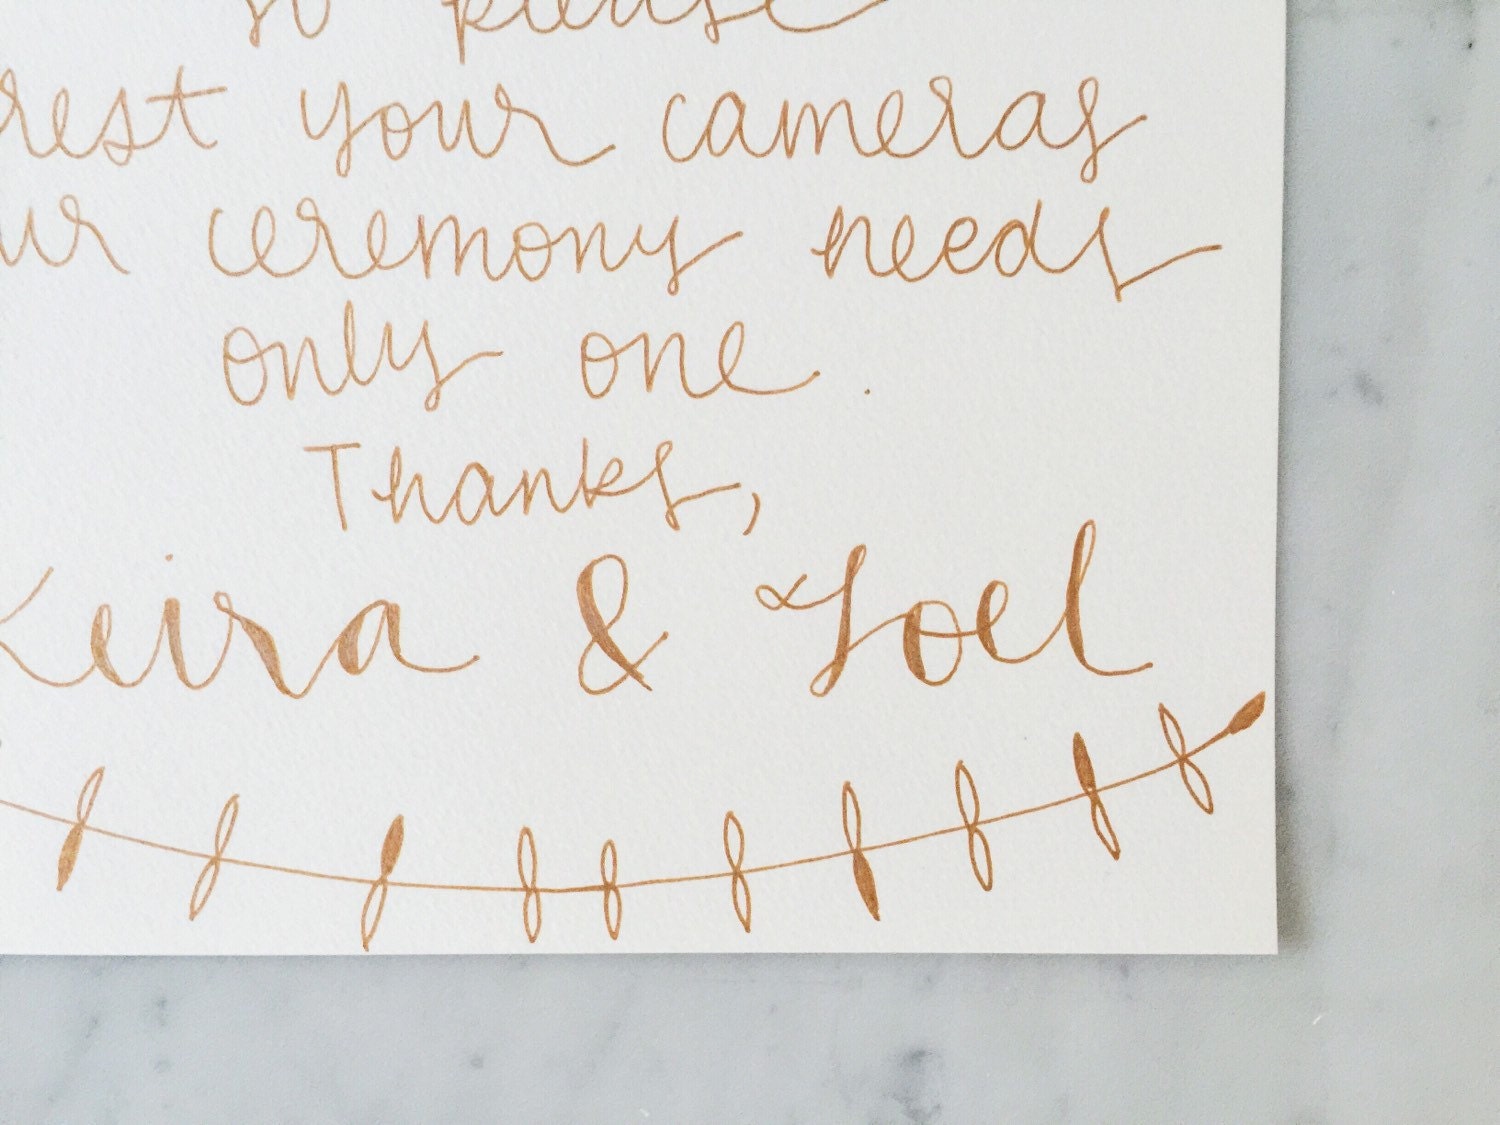 so please
rest your cameras
ur ceremony needs
only one.
Thanks,
Keira & Joel